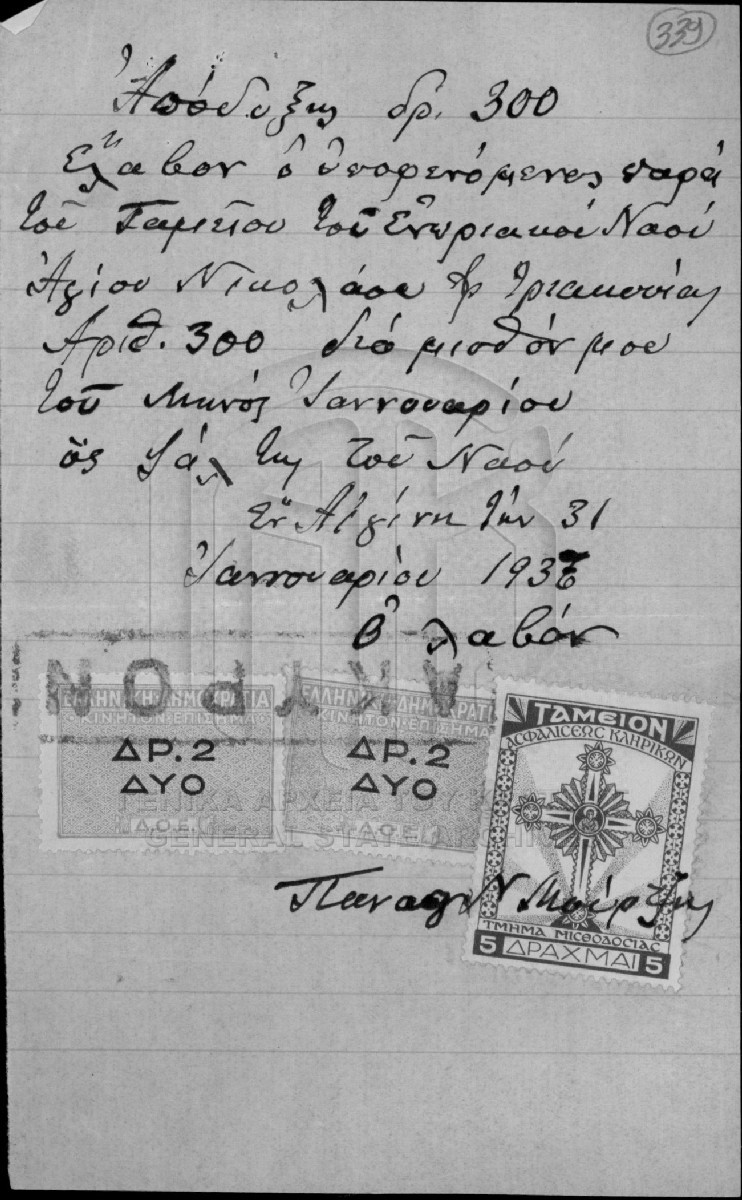 339
Ἀπόδυξης δρ. 300
Ἔλαβον ὁ ὑποφενόμενος παρά
τοῦ Ταμείου τοῦ Ἐνωριακοῦ Ναοῦ
Ἁγίου Νικολάου δρ τριακοσίας
Ἀριθ. 300 διά μισθόν μου
τοῦ Μηνός Ἰαννουαρίου
ὡς ψάλτης τοῦ Ναοῦ
Ἐν Αἰγίνη τήν 31
Ἰαννουαρίου 193
Ὁ λαβόν
ΑΚΥΡΟΝ
ΕΛΛΗΝΙΚΗ ΔΗΜΟΚΡΑΤΙΑ
ΚΙΝΗΤΟΝ ΕΠΙΣΗΜΑ
ΔΡ. 2
ΔΥΟ
ΕΛΛΗΝΙΚΗ ΔΗΜΟΚΡΑΤΙΑ
ΚΙΝΗΤΟΝ ΕΠΙΣΗΜΑ
ΔΡ. 2
ΔΥΟ
ΤΑΜΕΙΟΝ
ΑΣΦΑΛΙΣΕΩΣ ΚΛΗΡΙΚΩΝ
ΤΜΗΜΑ ΜΙΣΘΟΔΟΣΙΑΣ
5 ΔΡΑΧΜΑΙ 5
ΓΕΝΙΚΑ ΑΡΧΕΙΑ ΤΟΥ
GENERAL STATE ARCHI
Παναγ Ν Μούρτζης